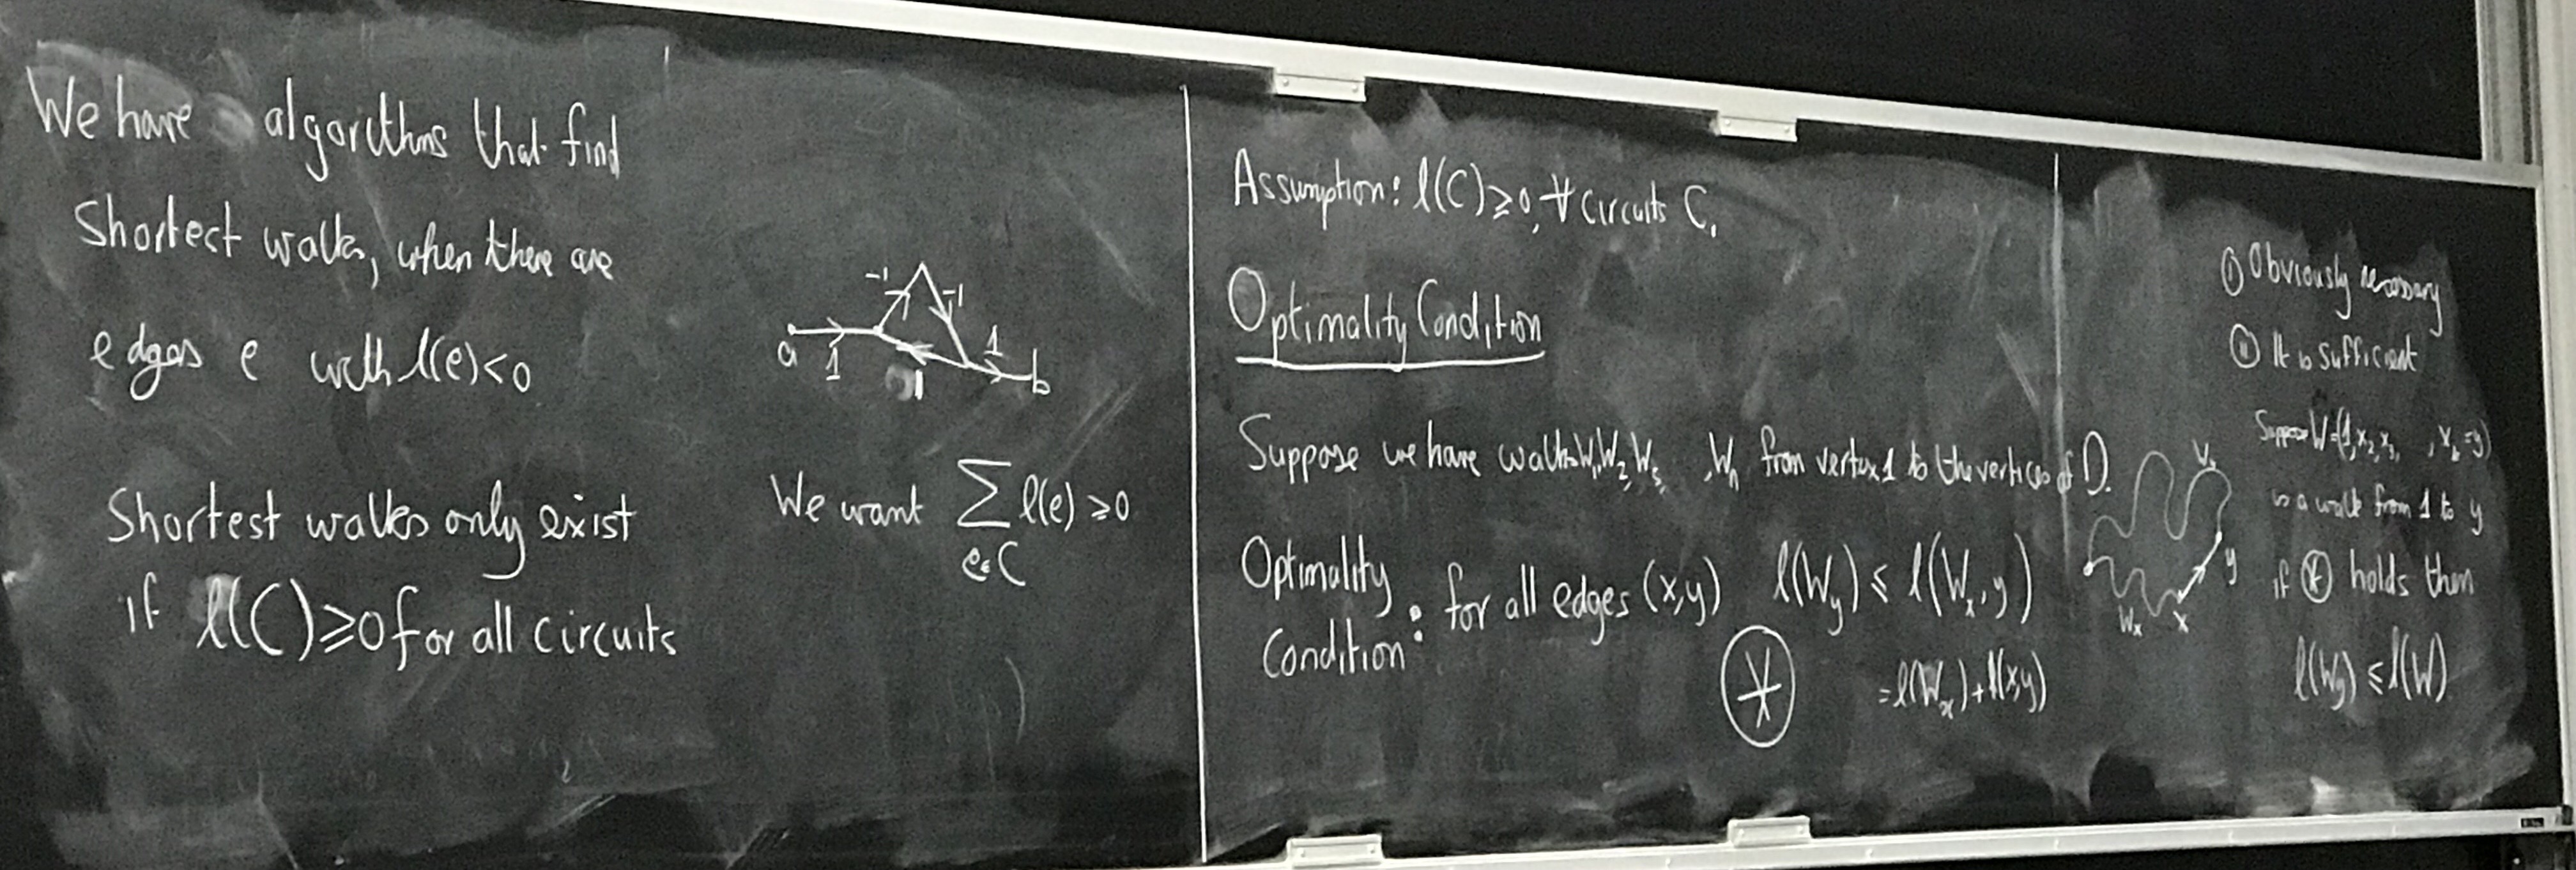 We have algorithms that find
Shortest walks, when there are
edges e with l(e)<0
Shortest walks only exist
if l(C)⩾0 for all circuits
-1
-1
a
1
1
1
b
We want ∑ l(e) ⩾0
e∈C
Assumption: l(C)⩾0, ∀ circuits C.
Optimality Condition
Suppose we have walks W₁, W₂, W₃, , Wₙ from vertex 1 to the vertices of D.
Optimality
Condition: for all edges (x,y) l(W_y) ⩽ l(W_x, y)
⊛ = l(W_x) + l(x,y)
W_x
x
y
① Obviously necessary
② It is sufficient
Suppose W=(1,x₂,x₃, ,x_k=y)
is a walk from 1 to y
if ⊛ holds then
l(W_y) ⩽ l(W).